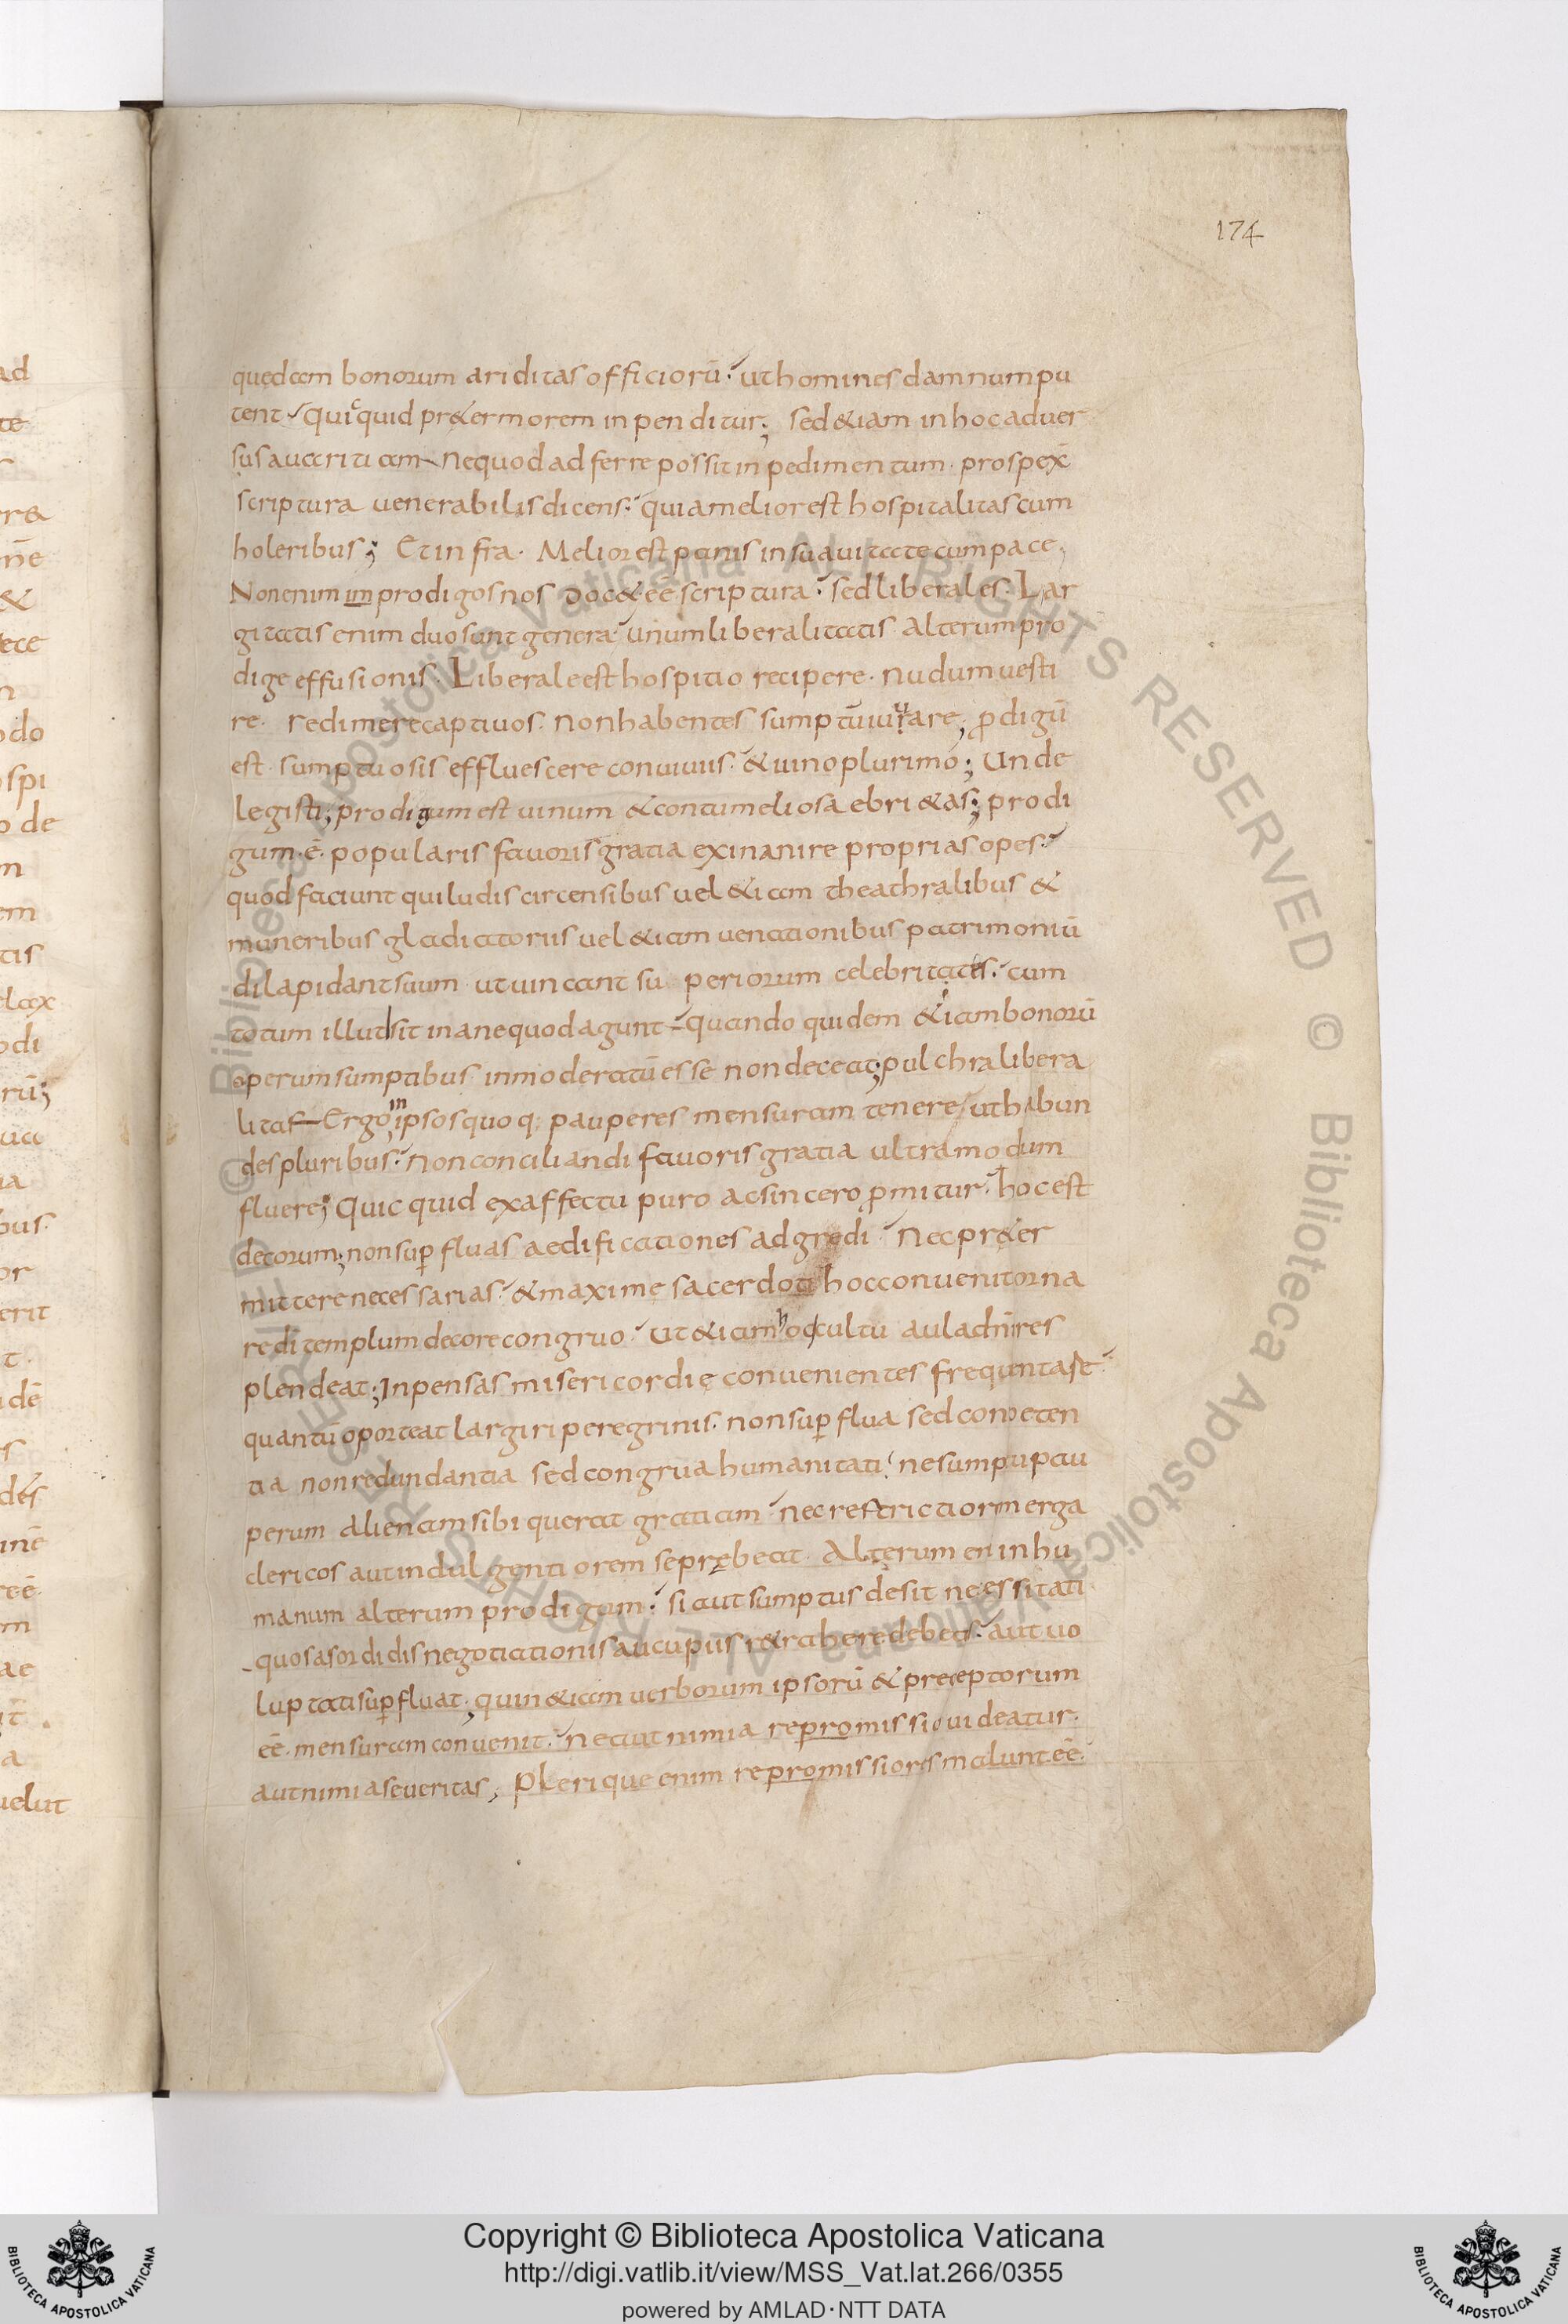 174
ad
te
quędam bonorum ariditas officiorū. ut homines damnum pu
tent. Quicquid pr&er morem inpenditur; sed &iam in hoc aduer
sus auaritiam nequod adferre possit inpedimentum. prospex̄
scriptura uenerabilis dicens. quia melior est hospitalitas cum
holeribus; Et infra. Melior est panis in suauitate cum pace,
Non enim improdigos nos doc& eē scriptura. sed liberales. Lar
gitatis enim duo sunt genera unum liberalitatis. Alterum pro
dige effusionis. Liberale est hospitio recipere. nudum uesti
re. redimere captiuos. non habentes sumptū iuuare; ꝓdigū
est. sumptuosis effluescere conuiuiis. & uino plurimo; Unde
legisti; prodigum est uinum & contumeliosa ebri&as; prodi
gum. ē. popularis fauoris gratia exinanire proprias opes.
quod faciunt qui ludis circensibus uel &iam theathralibus &
muneribus gladiatoriis uel &iam uenationibus patrimoniū
dilapidant suum ut uincant superiorum celebritates. cum
totum illut sit inane quod agunt. Quando quidem &iam bonorū
operum sumptibus inmoderatū esse non deceat; pulchra libera
litas Ergo in ipsos quoq; pauperes mensuram tenere ut habun
des pluribus. Non conciliandi fauoris gratia ultra modum
fluere; Quicquid ex affectu puro ac sincero ꝓmitur. hoc est
decorum; non suꝑfluas aedificationes adgredi. Nec pr&er
mittere necessarias. & maxime sacerdoti hoc conuenit orna
re dī templum decore congruo. Ut &iam hoc cultu aula dn̄i res
plendeat; Inpensas misericordię conuenientes frequntase
quantū oporteat largiri peregrinis. non suꝑflua sed conpeten
tia non redundantia sed congrua humanitati. ne sumptu pau
perum alienam sibi querat gratiam. nec restrictiorem erga
clericos aut indulgentiorem se prębeat. Alterum enī inhu
manum alterum prodigum. si aut sumptus desit necessitati
quos a sordidis negotiationis aucupiis r&rahere debeas. aut uo
luptati suꝑfluat; quin &iam uerborum ipsorū & preceptorum
eē. mensuram conuenit. ne aut nimia repromissio uideatur.
aut nimia seueritas; Plerique enim repromissiores malunt eē.
Copyright © Biblioteca Apostolica Vaticana
http://digi.vatlib.it/view/MSS_Vat.lat.266/0355
powered by AMLAD·NTT DATA
BIBLIOTECA APOSTOLICA VATICANA
BIBLIOTECA APOSTOLICA VATICANA